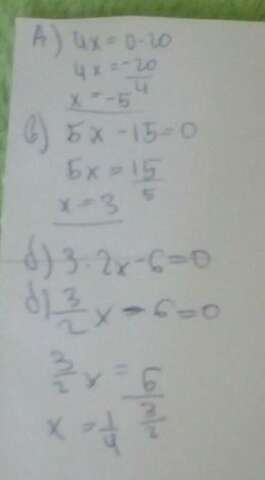 А) 4x = 0-20
4x = -20/4
x = -5
в) 5x - 15 = 0
5x = 15/5
x = 3
б) 3·2x - 6 = 0
б) 3/2 x - 6 = 0
3/2 x = 6/(3/2)
x = 1/4